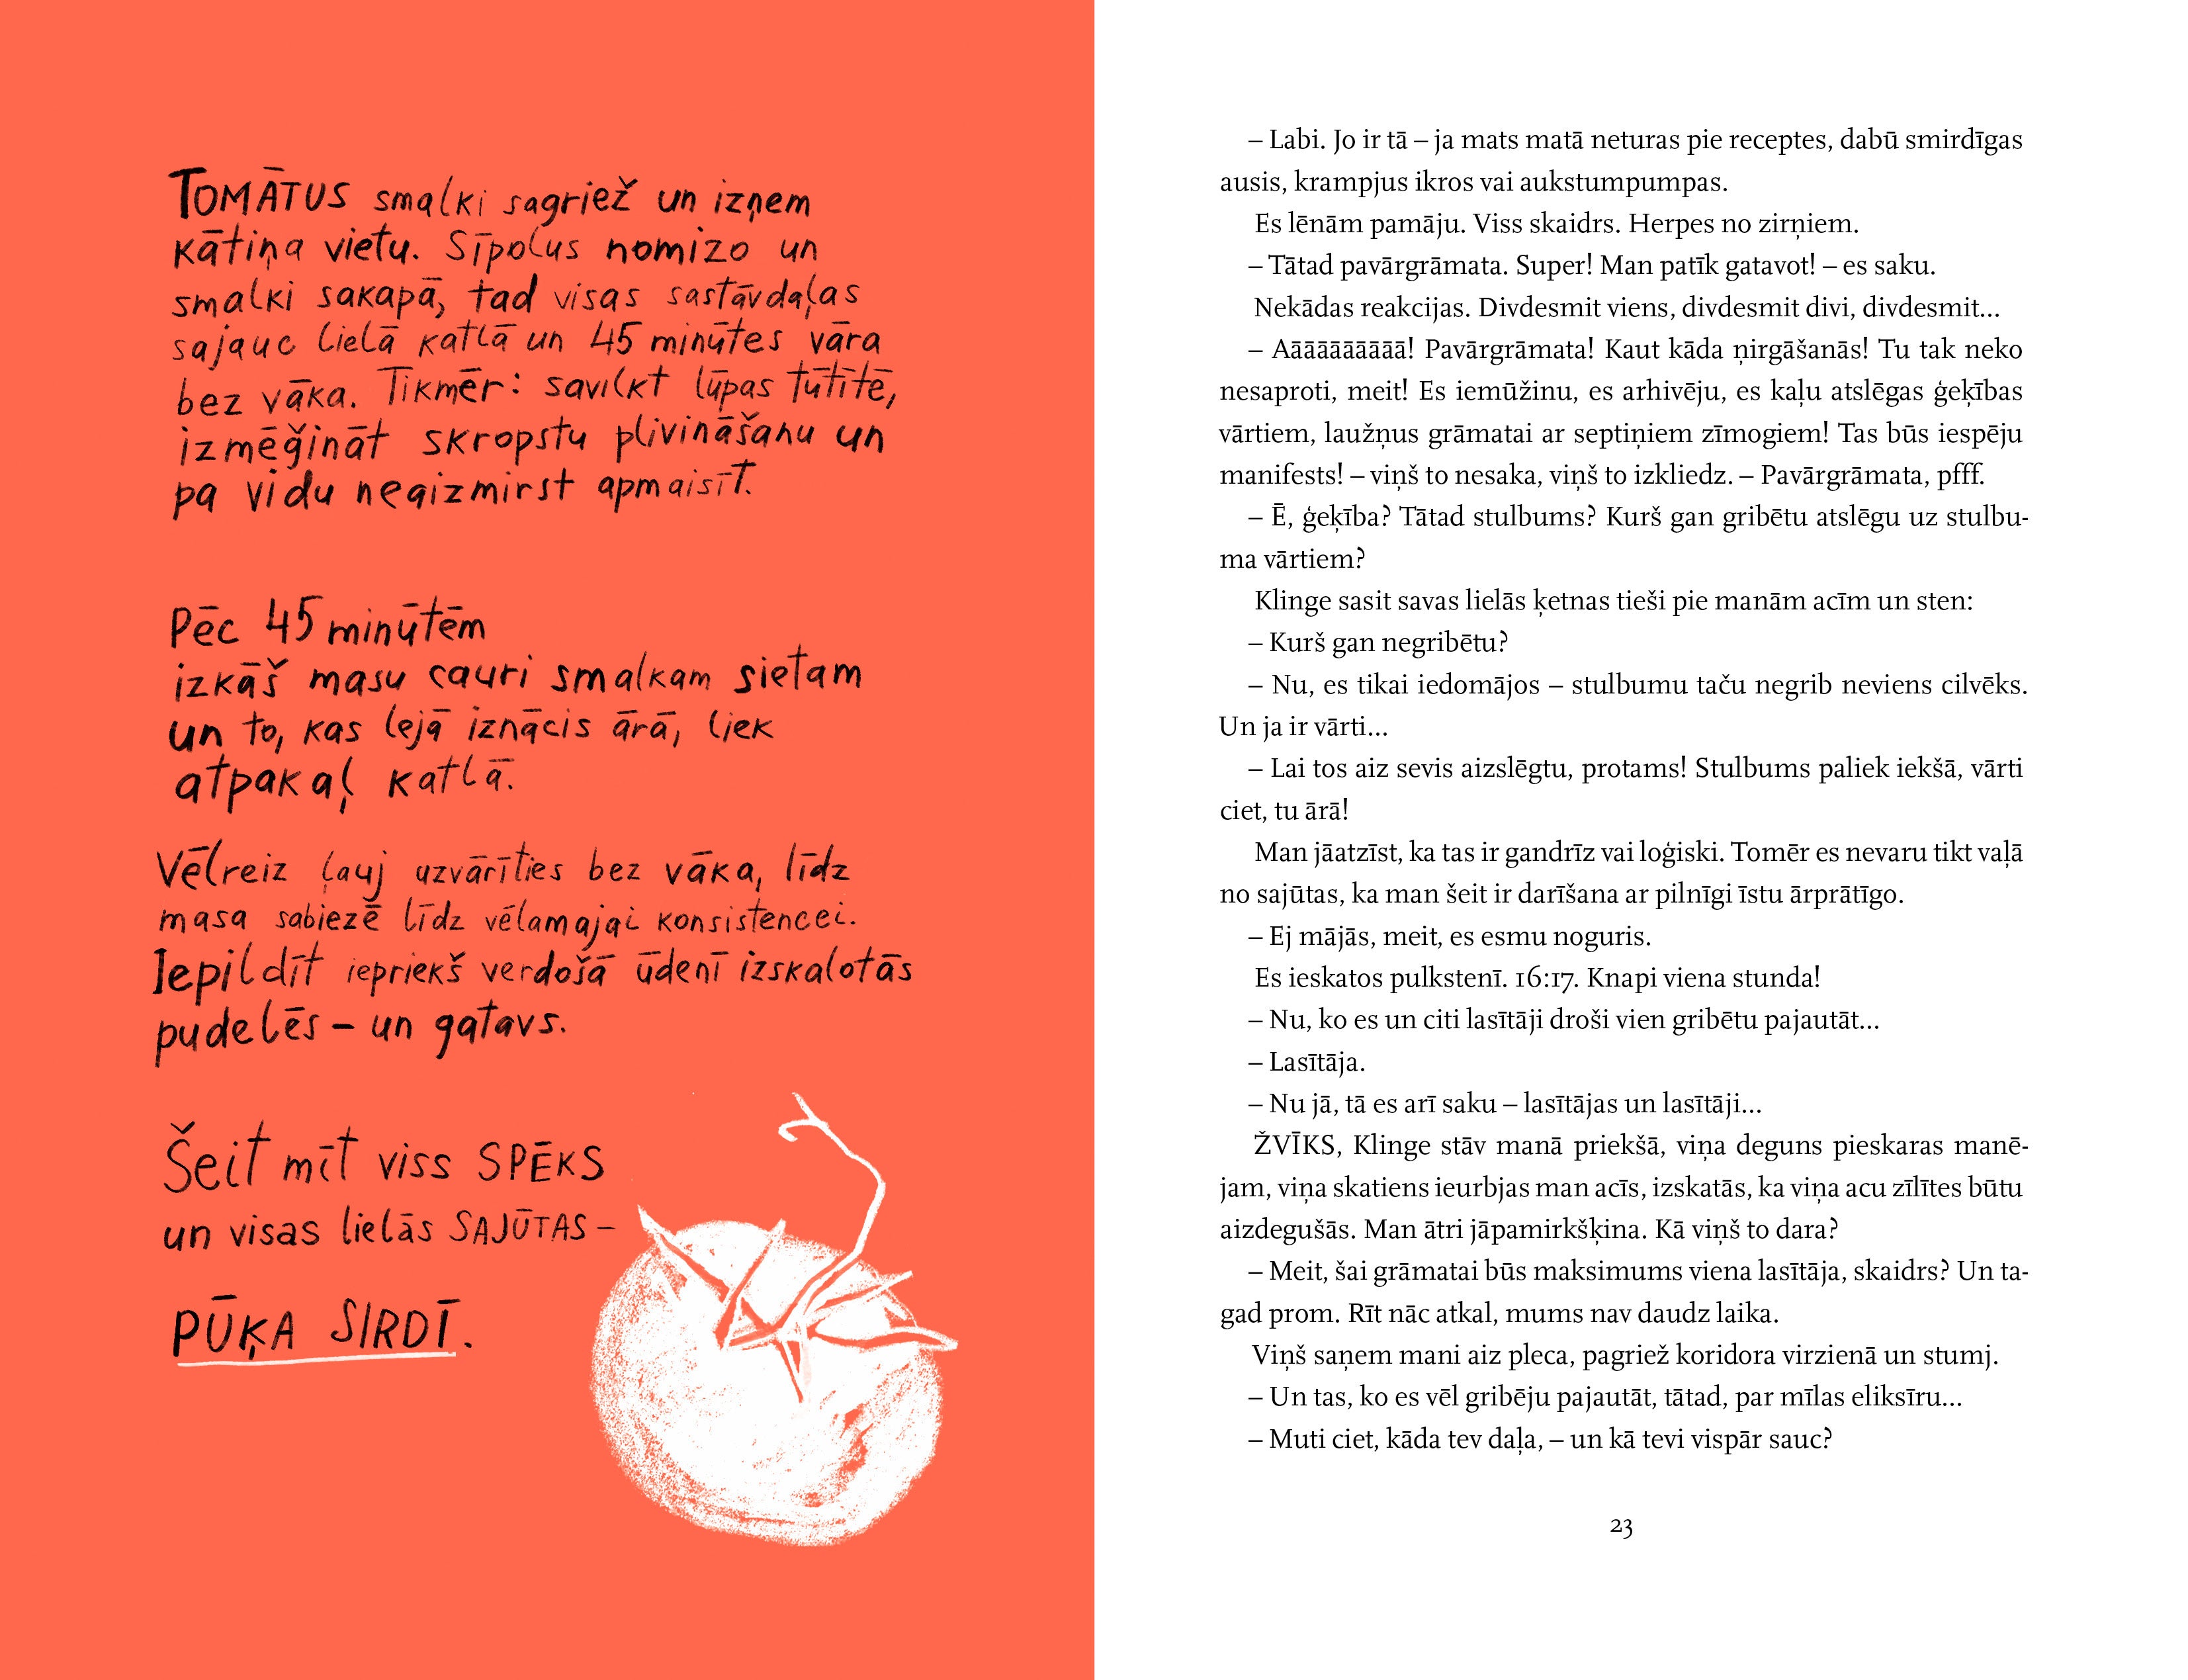 TOMĀTUS smalki sagriež un izņem
kātiņa vietu. Sīpolus nomizo un
smalki sakapā, tad visas sastāvdaļas
sajauc lielā katlā un 45 minūtes vāra
bez vāka. Tikmēr: savilkt lūpas tūtītē,
izmēģināt skropstu plivināšanu un
pa vidu neaizmirst apmaisīt.
Pēc 45 minūtēm
izkāš masu cauri smalkam sietam
un to, kas lejā iznācis ārā, liek
atpakaļ katlā.
Vēlreiz ļauj uzvārīties bez vāka, līdz
masa sabiezē līdz vēlamajai konsistencei.
Iepildīt iepriekš verdošā ūdenī izskalotās
pudelēs – un gatavs.
Šeit mīt viss SPĒKS
un visas lielās SAJŪTAS –
PŪĶA SIRDĪ.
– Labi. Jo ir tā – ja mats matā neturas pie receptes, dabū smirdīgas
ausis, krampjus ikros vai aukstumpumpas.
Es lēnām pamāju. Viss skaidrs. Herpes no zirņiem.
– Tātad pavārgrāmata. Super! Man patīk gatavot! – es saku.
Nekādas reakcijas. Divdesmit viens, divdesmit divi, divdesmit…
– Aāāāāāāāāā! Pavārgrāmata! Kaut kāda ņirgāšanās! Tu tak neko
nesaproti, meit! Es iemūžinu, es arhivēju, es kaļu atslēgas ģeķības
vārtiem, laužņus grāmatai ar septiņiem zīmogiem! Tas būs iespēju
manifests! – viņš to nesaka, viņš to izkliedz. – Pavārgrāmata, pfff.
– Ē, ģeķība? Tātad stulbums? Kurš gan gribētu atslēgu uz stulbu-
ma vārtiem?
Klinge sasit savas lielās ķetnas tieši pie manām acīm un sten:
– Kurš gan negribētu?
– Nu, es tikai iedomājos – stulbumu taču negrib neviens cilvēks.
Un ja ir vārti…
– Lai tos aiz sevis aizslēgtu, protams! Stulbums paliek iekšā, vārti
ciet, tu ārā!
Man jāatzīst, ka tas ir gandrīz vai loģiski. Tomēr es nevaru tikt vaļā
no sajūtas, ka man šeit ir darīšana ar pilnīgi īstu ārprātīgo.
– Ej mājās, meit, es esmu noguris.
Es ieskatos pulkstenī. 16:17. Knapi viena stunda!
– Nu, ko es un citi lasītāji droši vien gribētu pajautāt…
– Lasītāja.
– Nu jā, tā es arī saku – lasītājas un lasītāji…
ŽVĪKS, Klinge stāv manā priekšā, viņa deguns pieskaras manē-
jam, viņa skatiens ieurbjas man acīs, izskatās, ka viņa acu zīlītes būtu
aizdegušās. Man ātri jāpamirkšķina. Kā viņš to dara?
– Meit, šai grāmatai būs maksimums viena lasītāja, skaidrs? Un ta-
gad prom. Rīt nāc atkal, mums nav daudz laika.
Viņš saņem mani aiz pleca, pagriež koridora virzienā un stumj.
– Un tas, ko es vēl gribēju pajautāt, tātad, par mīlas eliksīru…
– Muti ciet, kāda tev daļa, – un kā tevi vispār sauc?
23